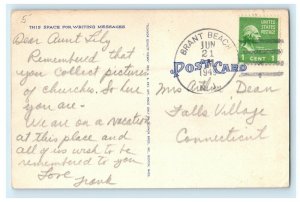 5
THIS SPACE FOR WRITING MESSAGES
Dear Aunt Lily
Remembered that
you collect pictures
of churches. So here
you are-
We are on a vacation
at this place and
all of us wish to be
remembered to you
Love
Frank
BRANT BEACH
JUN
21
194
N.J.
UNITED STATES POSTAGE
1 CENT 1
POST CARD
Mrs Dean
Falls Village
Connecticut